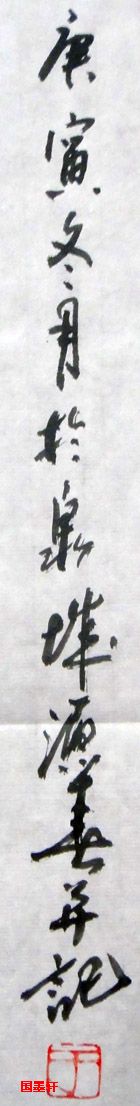 庚寅冬月於泉城源善并記
国墨轩